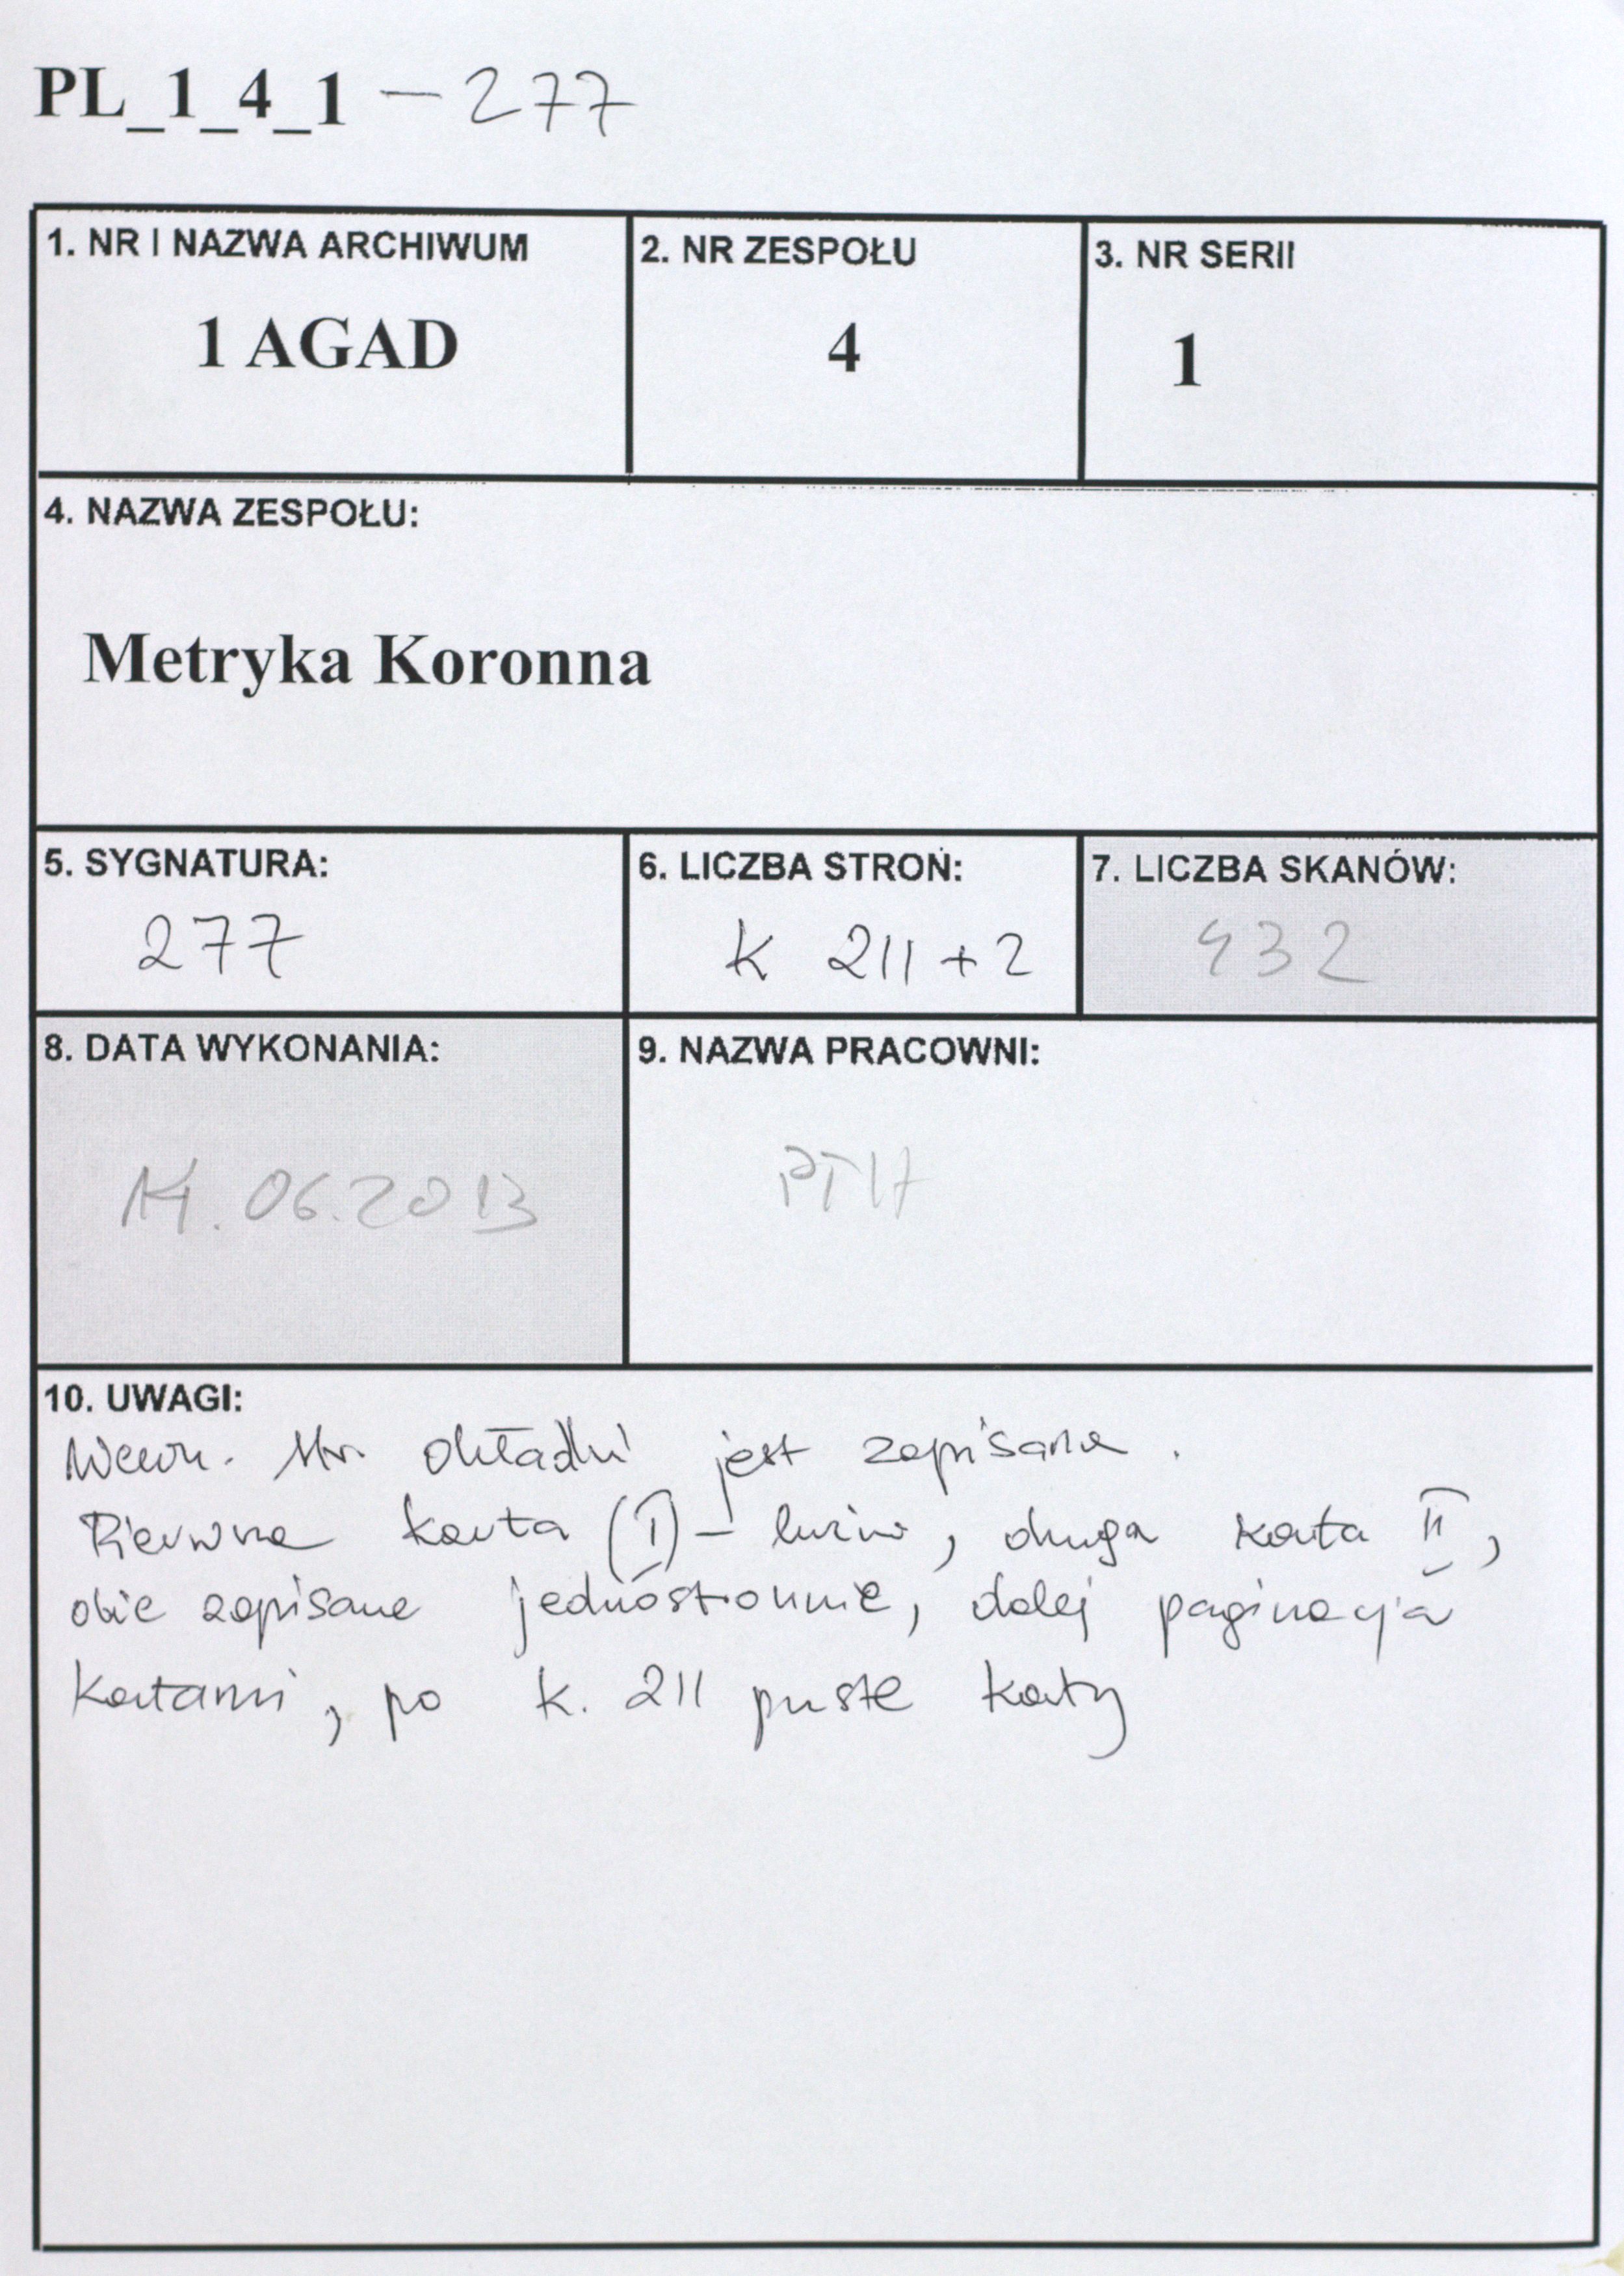 PL_1_4_1 – 277
1. NR I NAZWA ARCHIWUM
1 AGAD
2. NR ZESPOŁU
4
3. NR SERII
1
4. NAZWA ZESPOŁU:
Metryka Koronna
5. SYGNATURA:
277
6. LICZBA STRON:
K 211 + 2
7. LICZBA SKANÓW:
432
8. DATA WYKONANIA:
14.06.2013
9. NAZWA PRACOWNI:
10. UWAGI:
Wewn. str. okładki jest zapisana.
Pierwsza karta (I) – luźna, druga karta II,
obie zapisane jednostronnie, dalej paginacja
kartami, po k. 211 puste karty